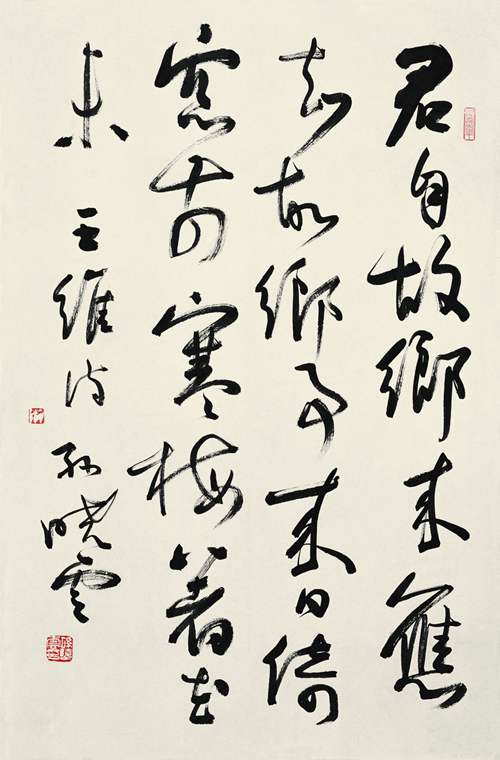 君自故鄉來應
知故鄉事來日倚
窗前寒梅著花
未 王維詩 孫曉雲